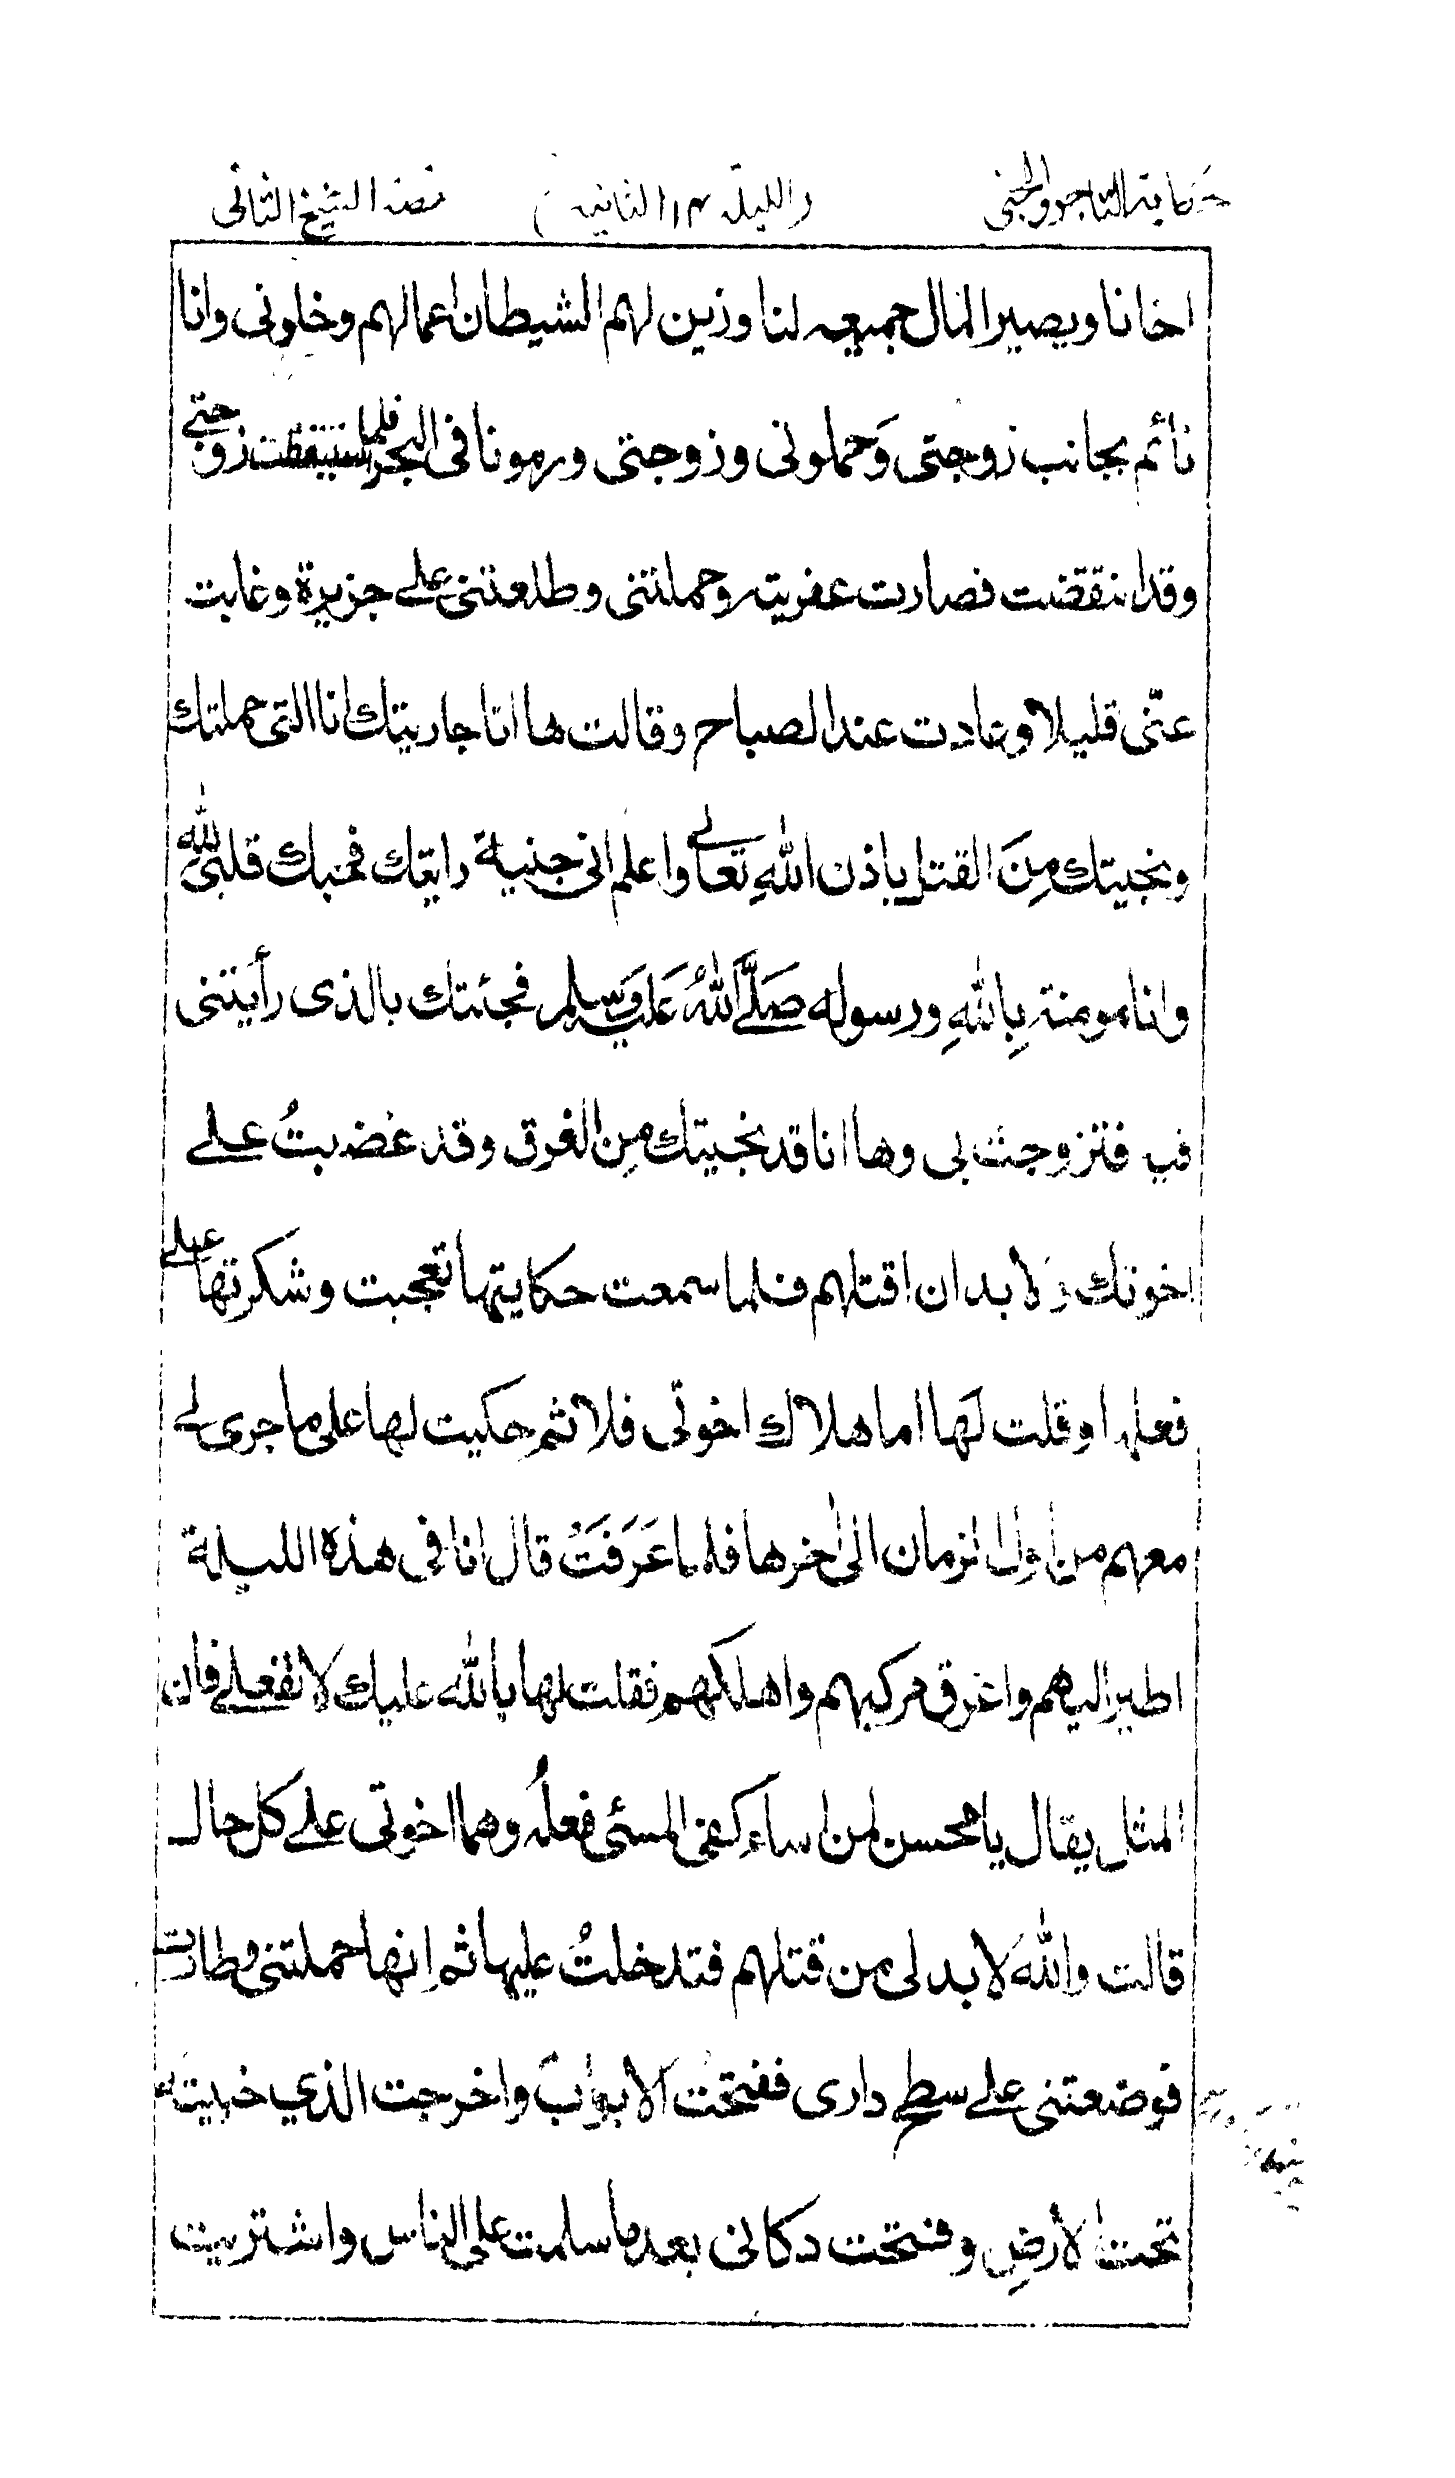 حكاية التاجر والجنى (الليلة ١٢ الثانية) قصة الشيخ الثانى
اخانا ويصير المال جميعه لنا وزين لهم الشيطان اعمالهم وخلونى وانا
نائم بجانب زوجتى وَحملونى وزوجتى ورمونا فى البحر فلما استيقظت زوجتى
وقد انتقضت فصارت عفريته وحملتنى وطلعتنى على جزيرة وغابت
عنّى قليلا وعادت عند الصباح وقالت ها انا جاريتك انا التى حملتك
ونجيتك مِنَ القتل باذن اللهِ تعالى واعلم انى جنية رايتك فحبك قلبى لله
وانا مومنة بِاللهِ ورسوله صَلَّى اللهُ عَليه وَسلم فجئتك بالذى رأيتنى
فيه فتزوجت بى وها انا قد نجيتك مِن الغرق وقد غضبتُ على
اخوتك ولا بد ان اقتلهم فلما سمعت حكايتها تعجبت وشكرتها على
فعلها وقلت لَها اما هلاك اخوتى فلا ثم حكيت لها على ما جرى لى
معهم من اول الزمان الى اخرها فلما عَرَفَتُ قال انا فى هذه الليلة
اطير اليهم واغرق مركبهم واهلكهم فقلت لها بالله عليك لا تفعلى فان
المثل يقال يا محسن لمن اساء كفى المسئى فعلُه وهما اخوتى على كل حال
قالت والله لا بد لى من قتلهم فتدخلتُ عليها ثم انها حملتنى وطارت
فوضعتنى على سطح دارى ففتحت الابواب واخرجت الذي خبيته
تحت الأرضِ وفتحت دكانى بعد ما سلمت على الناس واشتريت